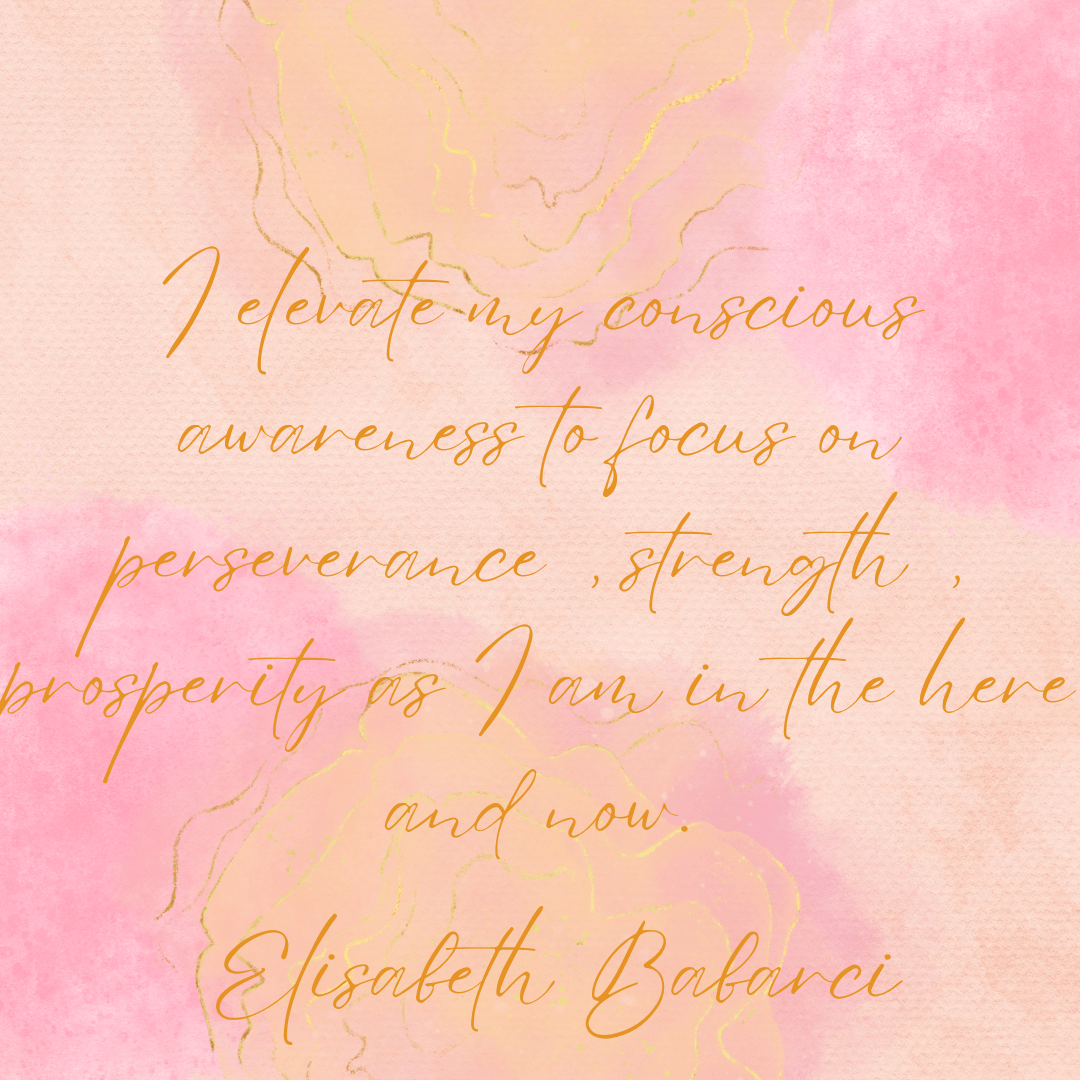 I elevate my conscious
awareness to focus on
perseverance , strength ,
prosperity as I am in the here
and now.
Elisabeth Babarci